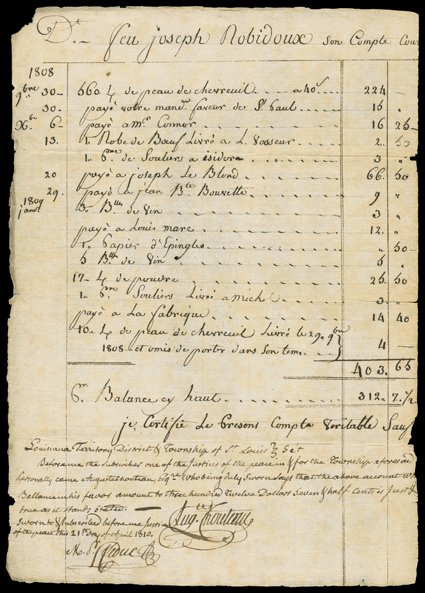 Dt. Feu Joseph Robidoux Son Compte Cour
1808
9bre 30 560 ℔ de peau de chevreuil a 40s. 224 —
30 payé votre mand. faveur de St. Paul 16 —
Xbr. 6 payé a Mr. Connor 16 25
13 1 Robe de Bœuf Livré a L. Vasseur 2 50
1 pre de Souliers a isidore 3 "
20 payé a joseph Le Blond 66 50
29 payé a jean Bte. 9 "
1809
janr. 3 Blles de vin 3 "
payé a Louis marc 12 "
1 papier d'Epingles " 50
5 Blles de vin 5 "
17 ℔ de poudre 25 50
1 pre Souliers Livré a mich! 3 —
payé a La fabrique 14 40
10 ℔ de peau de chevreuil Livré le 29. 9bre
1808 et omis de porter dans son tem. 4 —
403. 65
Balance cy haut 312. 7.½
je Certifie le Presens Compte Veritable Sauf
Louisiana Territory District & Township of St. Louis
Before me the Subscriber one of the Justices of the peace in & for the Township aforesaid
personally came August Chouteau, Esqre. who being duly Sworn Says that the above account
Ballance in his favor amount to three hundred twelve Dollars seven & half Cents is Just &
true as it stands Stated.
Sworn to & Subscribed before me Justice
of the peace this 21st. day of april 1810.
Augte. Chouteau
M. P. Leduc